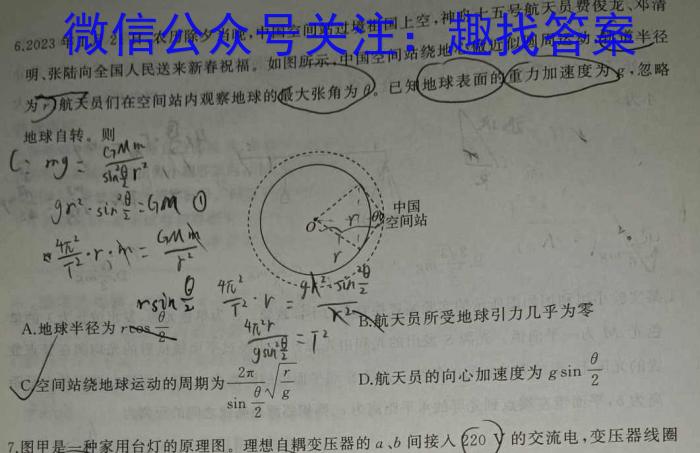 微信公众号关注：趣找答案
6.2023年 农历除夕当晚，中国空间站过境祖国上空，神舟十五号航天员费俊龙、邓清
明、张陆向全国人民送来新春祝福。如图所示，中国空间站绕地 做近似圆周运动 轨道半径
为r，航天员们在空间站内观察地球的最大张角为θ。已知地球表面的重力加速度为g，忽略
地球自转。则
C: mg = GMm / sin²θ/2 r²
gr²·sin²θ/2 = GM ①
4π²/T² · r · m = GMm / r²
4π²/T² · r = gr²·sin²θ/2 / r²
4π²r / g sin²θ/2 = T²
r sin θ/2
O
r
r
r
θ
中国
空间站
A.地球半径为 r cos θ/2
B.航天员所受地球引力几乎为零
C.空间站绕地球运动的周期为 2π / sin θ/2 √ r/g
D.航天员的向心加速度为 g sin θ/2
7.图甲是一种家用台灯的原理图。理想自耦变压器的a、b间接入220 V的交流电，变压器线圈